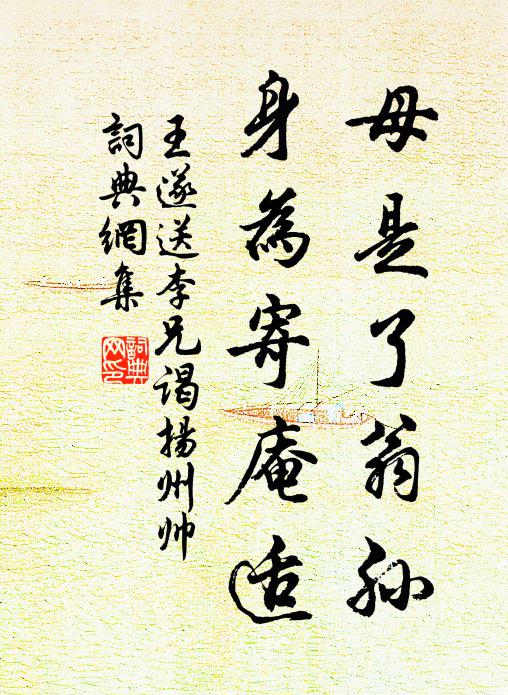 母是了翁孙
身為寄庵适
王遂送李兄谒揚州帅
詞典網集
詞典网印